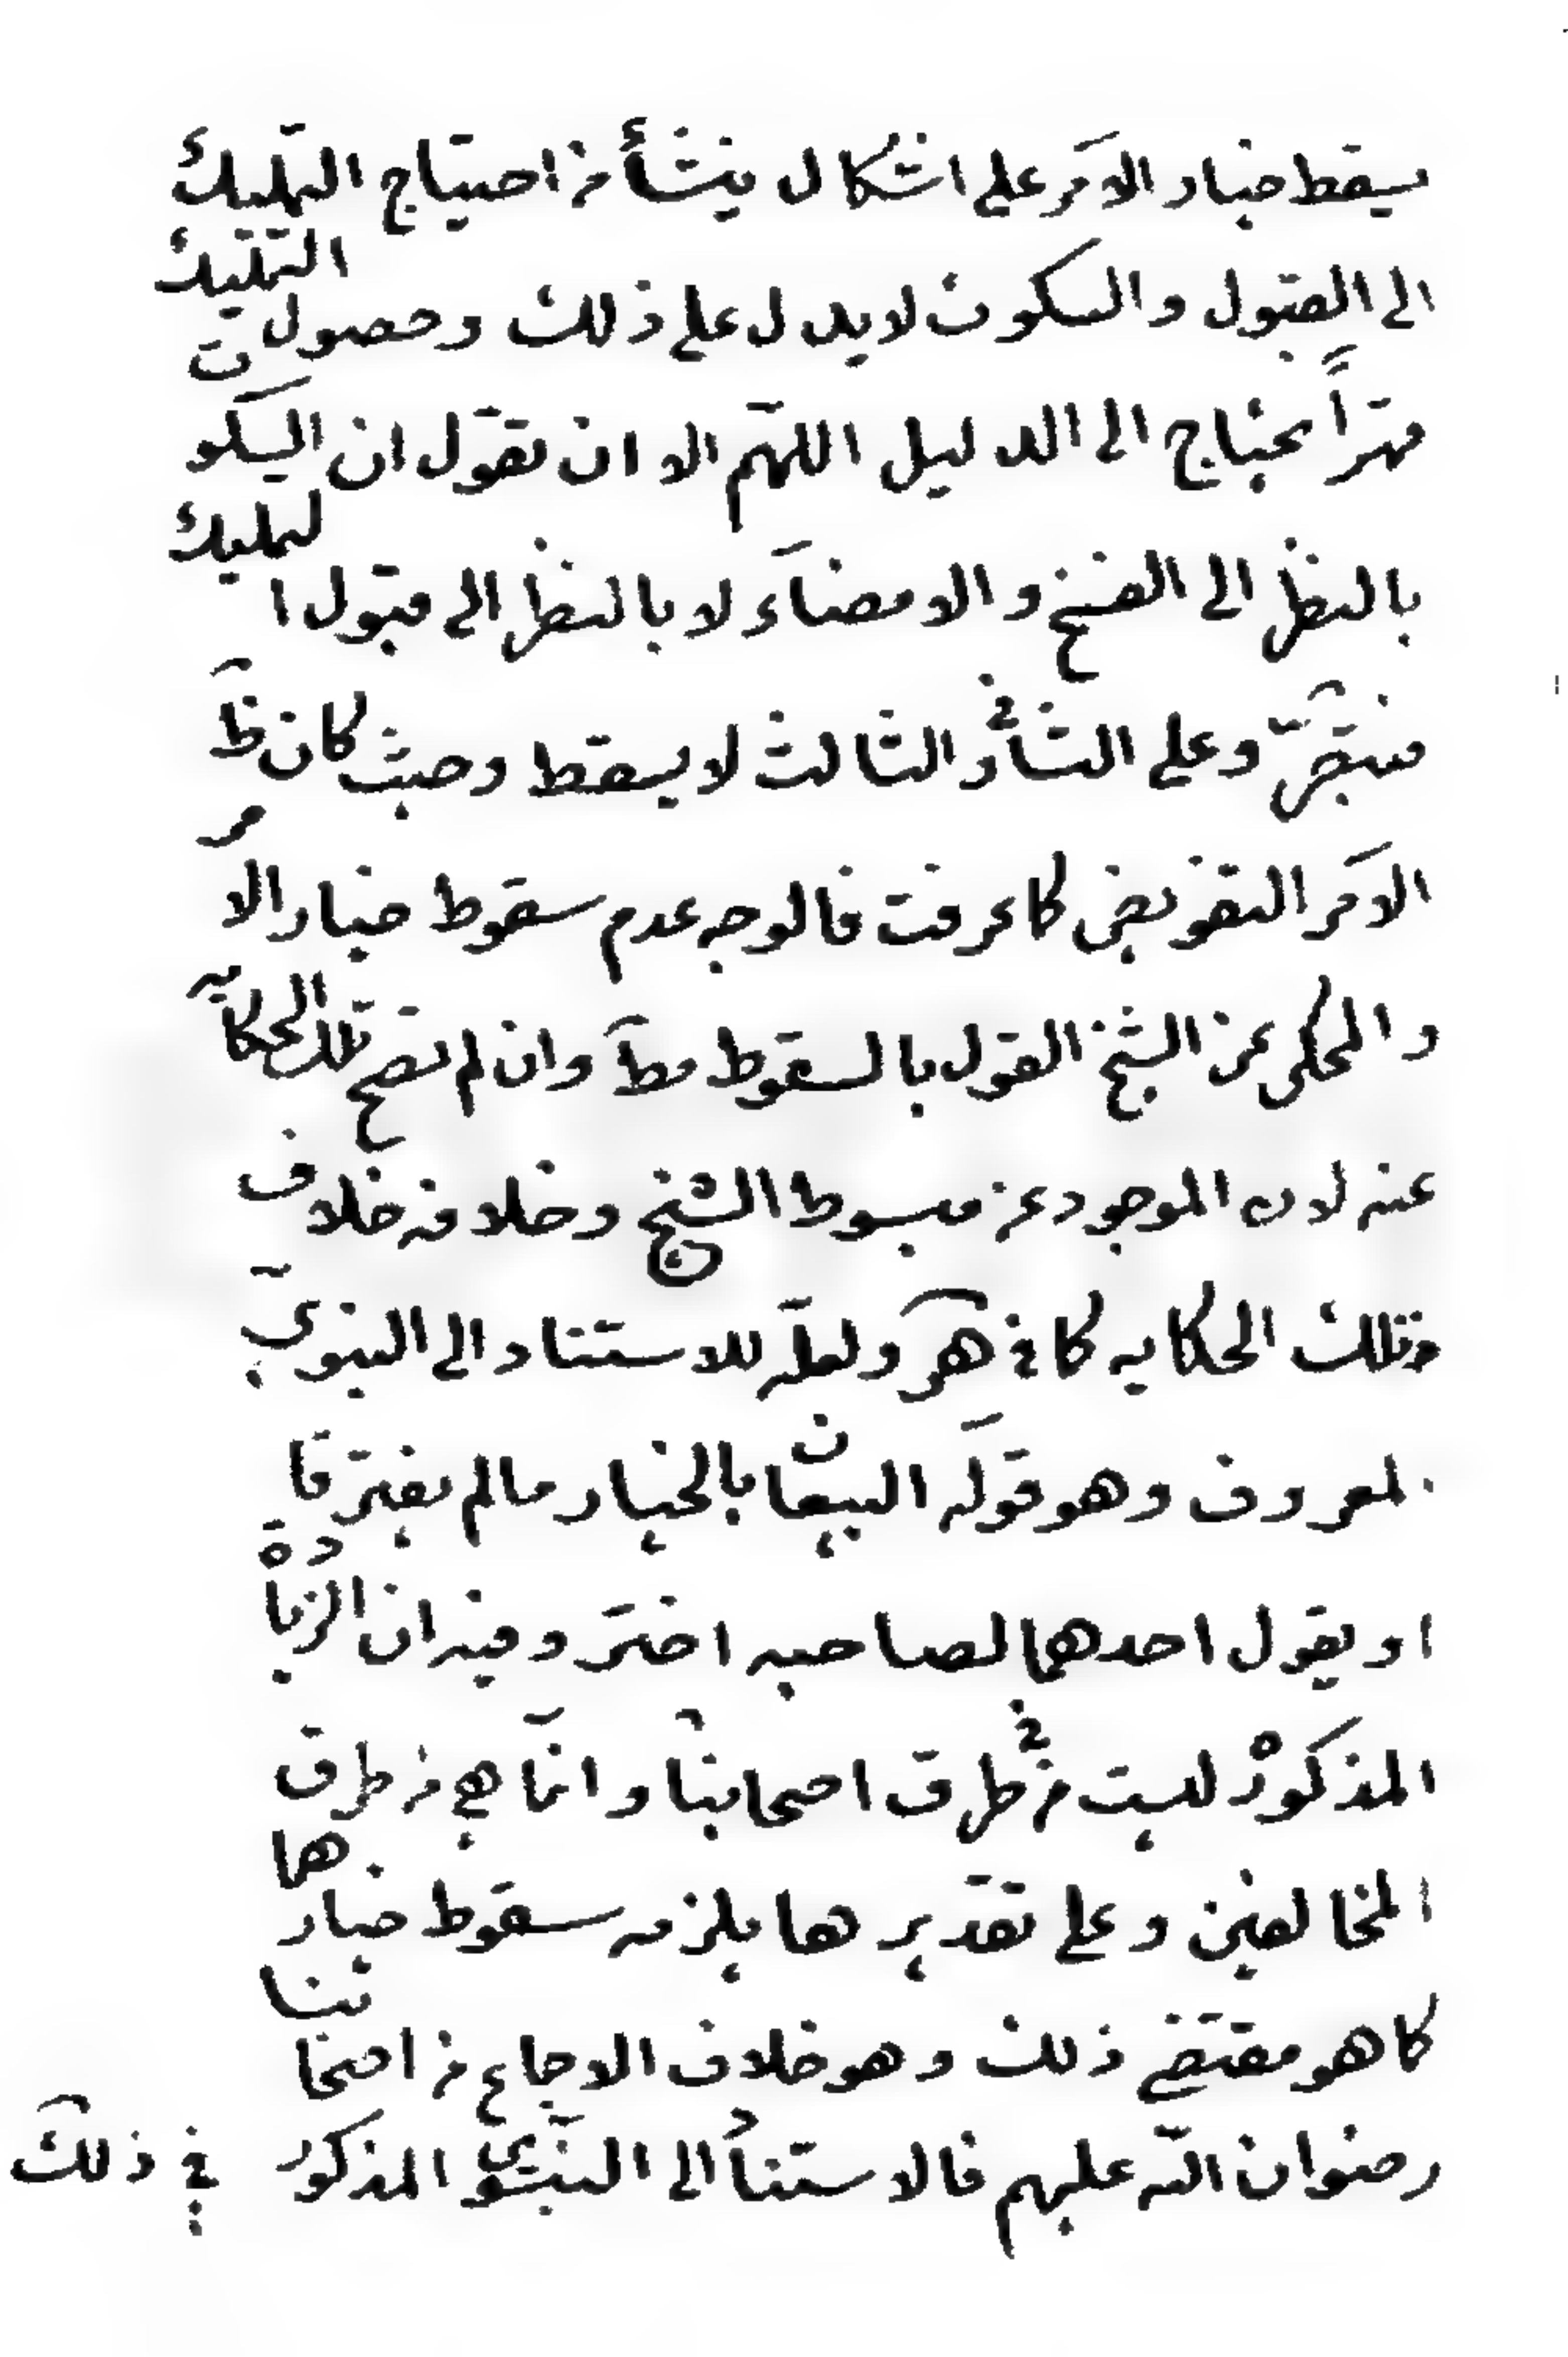 يسقط خيار الآمر على اشكال ينشأ من احتياج التمليك
الى القبول والسكوت لا يدل على ذلك وحصول التمليك
قهراً يحتاج الى الدليل اللهم الا ان نقول ان السكوت
بالنظر الى الفسخ والامضاء لا بالنظر الى قبول التمليك
وعلى الثانى والثالث لا يسقط وحيث كان ظ
الامر التفويض كما عرفت فالوجه عدم سقوط خيار الامر
والمحكى عن الشيخ القول بالسقوط مط وان لم تصح تلك الحكاية
عنه لان الموجود عن مبسوط الشيخ وخلافه خلاف
تلك الحكايه كما فى هر ولعله للاستناد الى النبوى
المعروف وهو قوله البيعان بالخيار مالم يفترقا
او يقول احدهما لصاحبه اختر وفيه ان الزيادة
المذكورة ليست من طرق اصحابنا وانما هى من طرق
المخالفين وعلى تقديرها يلزمه سقوط خيارهما
كما هو مقتضى ذلك وهو خلاف الاجماع من اصحابنا
رضوان الله عليهم فالاستناد الى النبوى المذكور فى ذلك